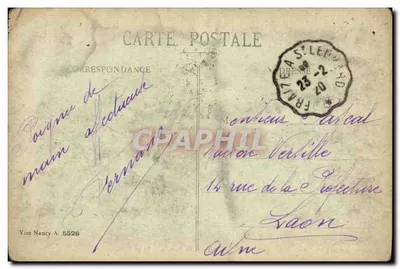 CARTE POSTALE
CORRESPONDANCE
FRAIZE A ST LEONARD
23-2
20
Poignée de
main affectueuse
Vernat
CPARAMA
Monsieur Pascal
Maison Vertille
12 rue de la Préfecture
Laon
Aisne
Visé Nancy A. 5526